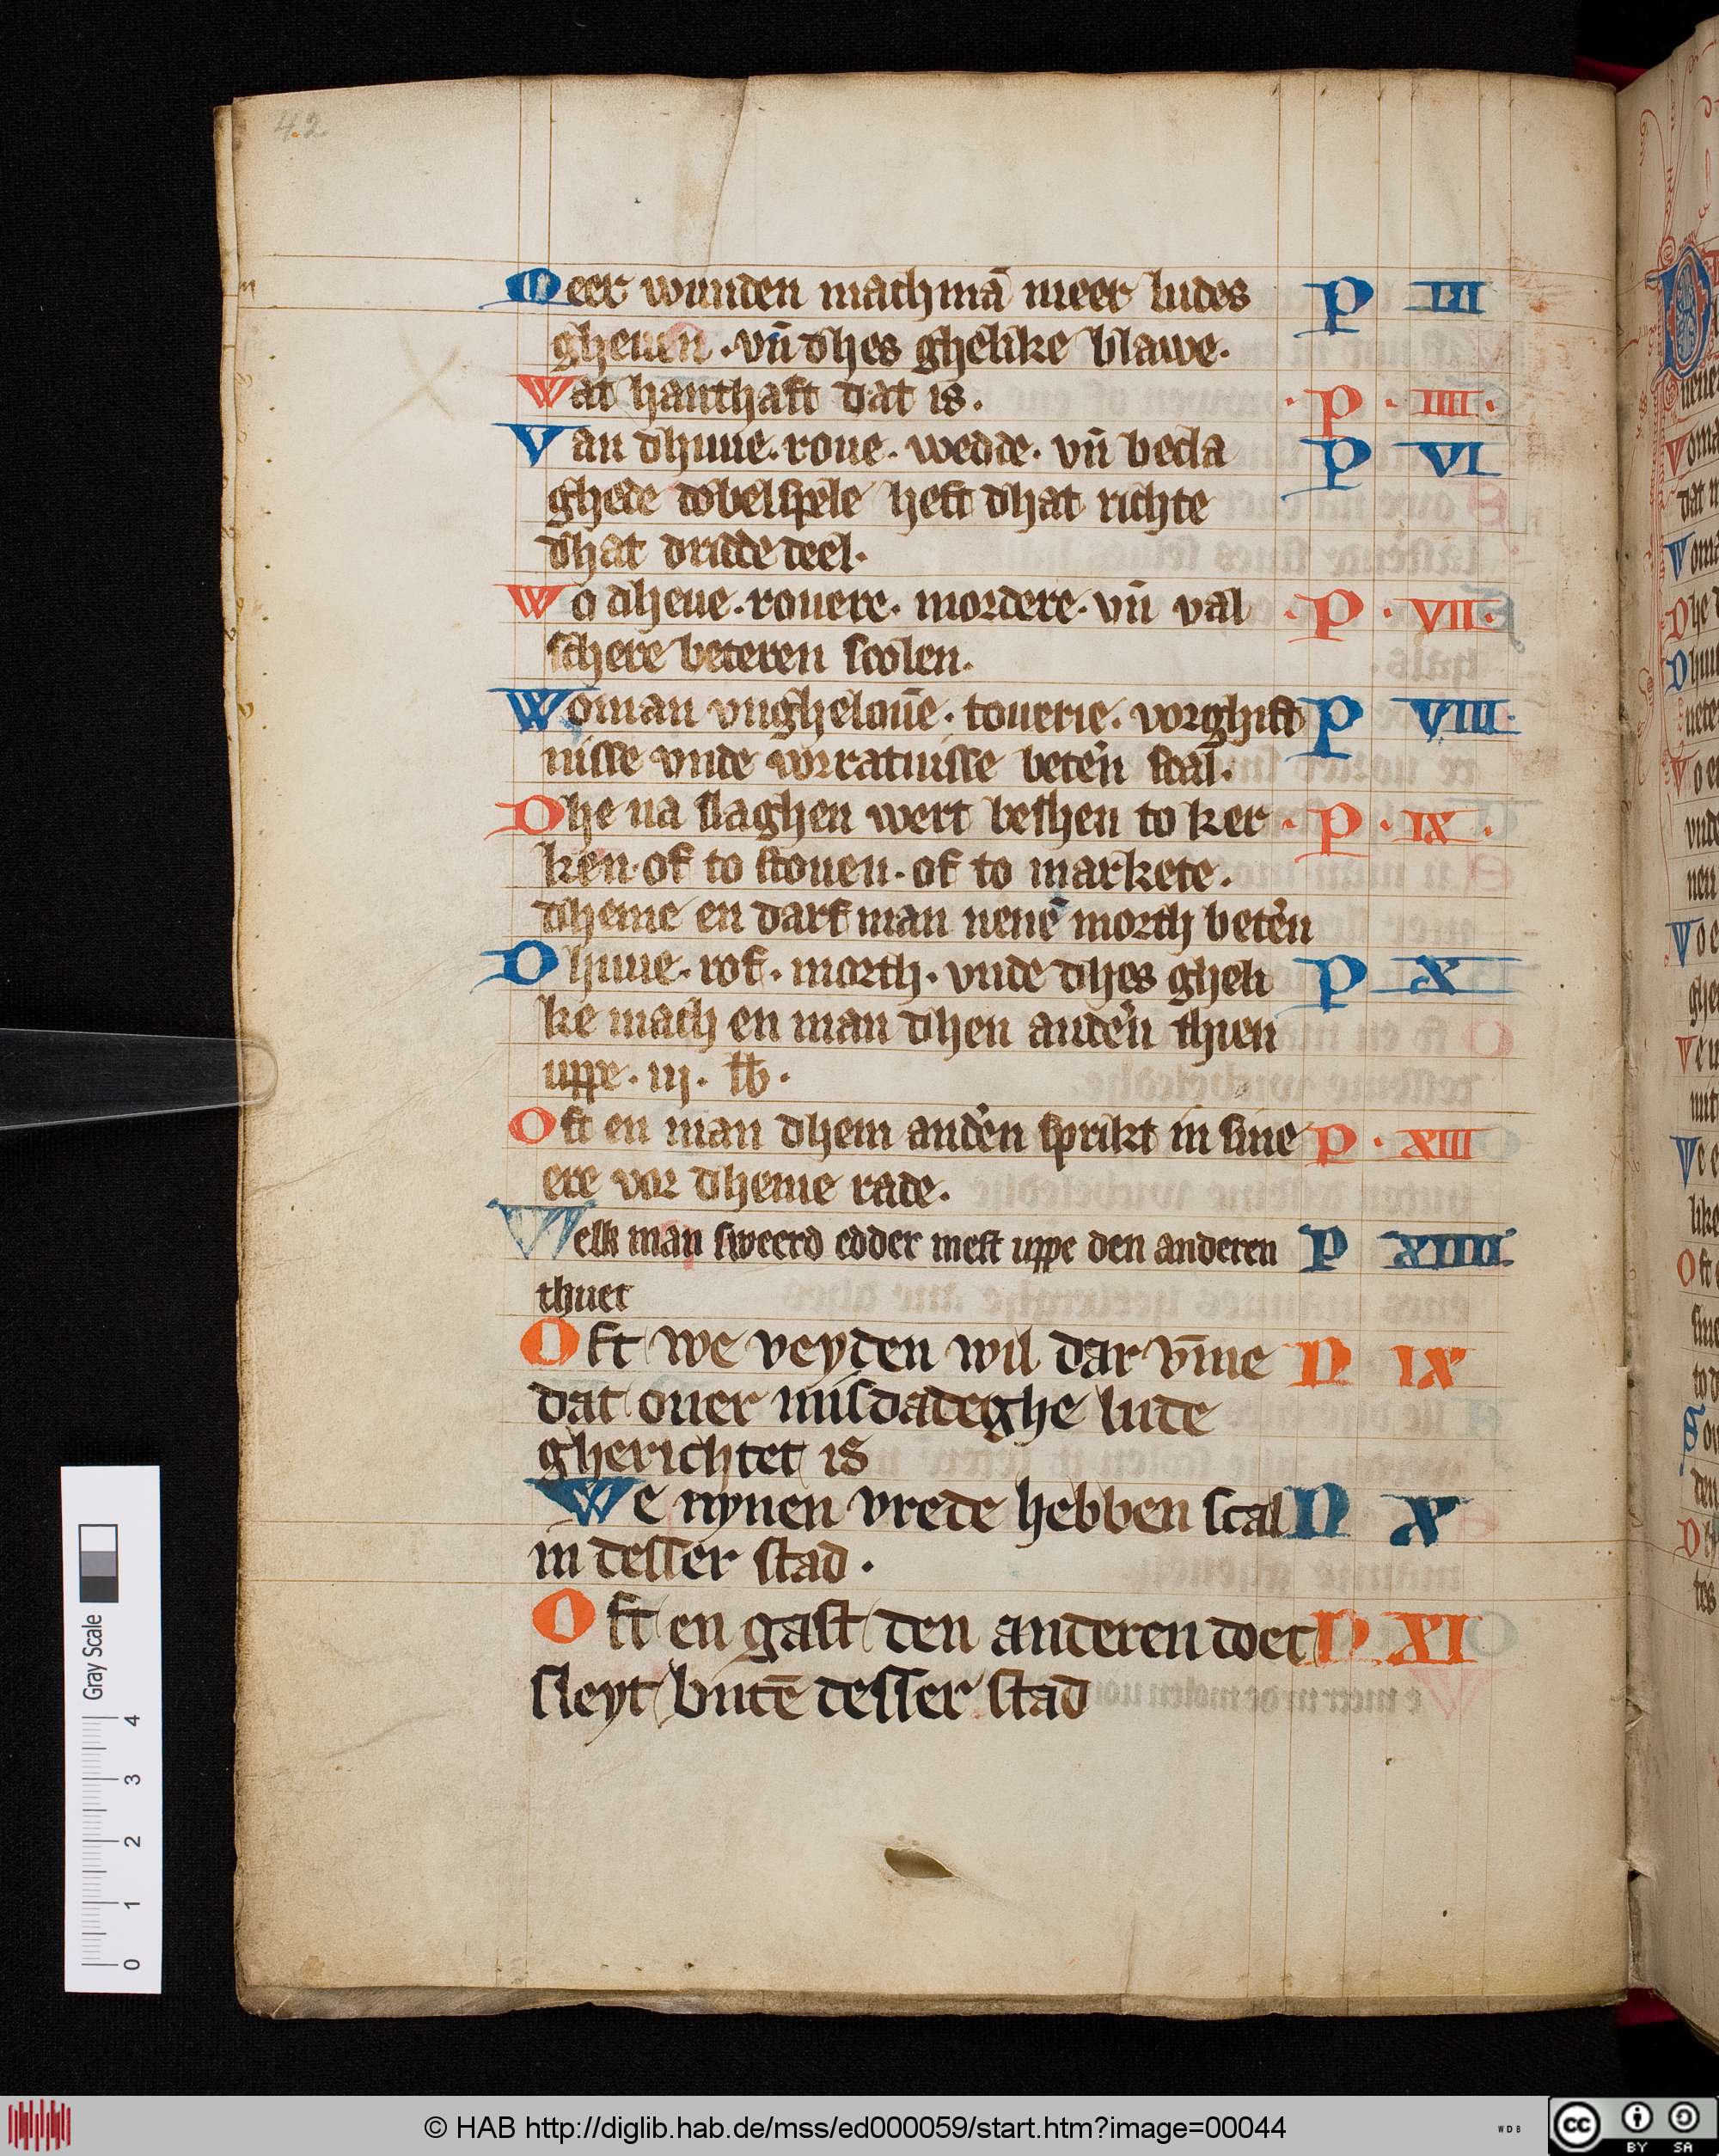 42
Meer wunden mach mā meer ludes P III
gheuen · vn̄ dhes ghelike blawe ·
Wat hanthaft dat is · · P · IIII ·
Van dhuue · roue · wedde · vn̄ becla P VI
ghede dobelspele heft dhat richte
dhat dridde deel ·
Wo dheue · rouere · mordere · vn̄ val · P · VII ·
schere beteren scolen ·
Woman vngheloūe · touerie · vorghift P VIII ·
nisse vnde vorratnisse beten̉ scal ·
Dhe na slaghen wert besֿhen to ker · P · IX ·
ken · of to stouen · of to markete ·
dheme en darf man nenē morth beten̉
Dhuue · rof · morth · vnde dhes gheli P X
ke mach en man dhen anden̉ thien
uppe · iij · lb ·
Oft en man dhem anden̉ sprikt in sine P · XIII
ere vor dheme rade ·
Welk man sweerd edder mest uppe den anderen P XIIII ·
thuet
Oft we veyden wil dar v̄me N IX
dat ouer misdadeghe lude
gherichtet is
We nynen vrede hebben scal N X
in desser stad ·
Oft en gast den anderen doet N XI
sleyt butē desser stad
Gray Scale
0 1 2 3 4
© HAB http://diglib.hab.de/mss/ed000059/start.htm?image=00044
WDB
cc BY SA